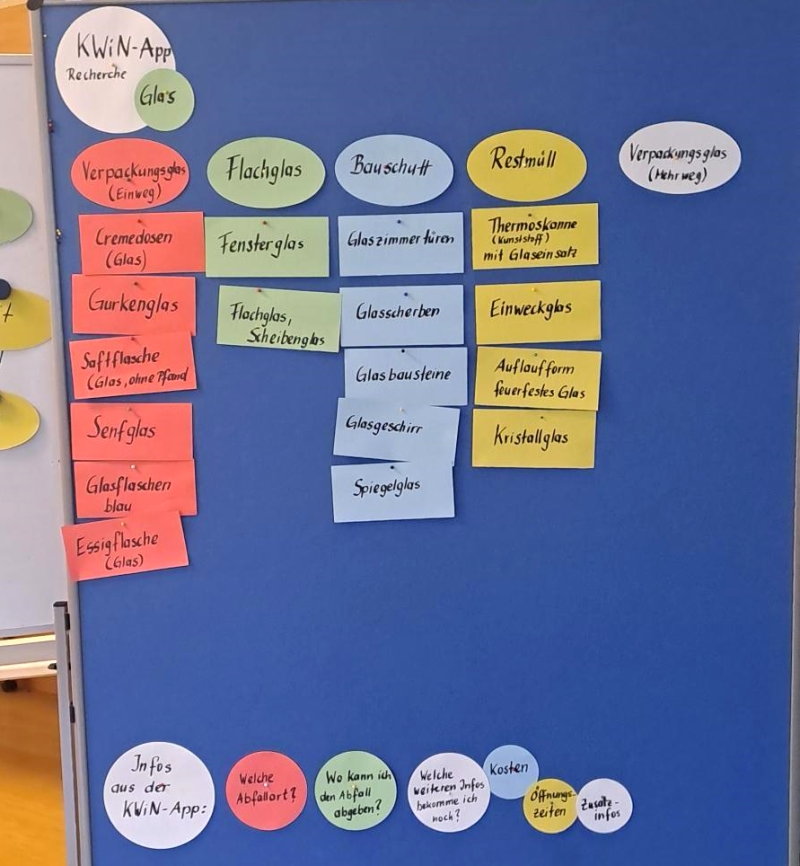 KWiN-App
Recherche
Glas
Verpackungsglas
(Einweg)
Cremedosen
(Glas)
Gurkenglas
Saftflasche
(Glas, ohne Pfand
Senfglas
Glasflaschen
blau
Essigflasche
(Glas)
Flachglas
Fensterglas
Flachglas,
Scheibenglas
Bauschutt
Glaszimmertüren
Glasscherben
Glasbausteine
Glasgeschirr
Spiegelglas
Restmüll
Thermoskanne
(Kunststoff)
mit Glaseinsatz
Einweckglas
Auflaufform
feuerfestes Glas
Kristallglas
Verpackungsglas
(Mehrweg)
Infos
aus der
KWiN-App:
Welche
Abfallart?
Wo kann ich
den Abfall
abgeben?
Welche
weiteren Infos
bekomme ich
noch?
Kosten
Öffnungs-
zeiten
Zusatz-
infos